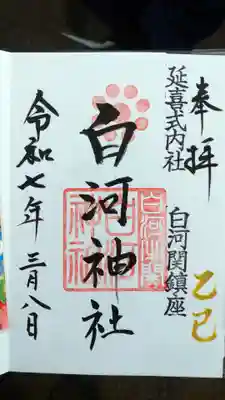 奉拝
延喜式内社
白河関鎮座
乙巳
白河神社
白河関
白河神社
令和七年 三月八日